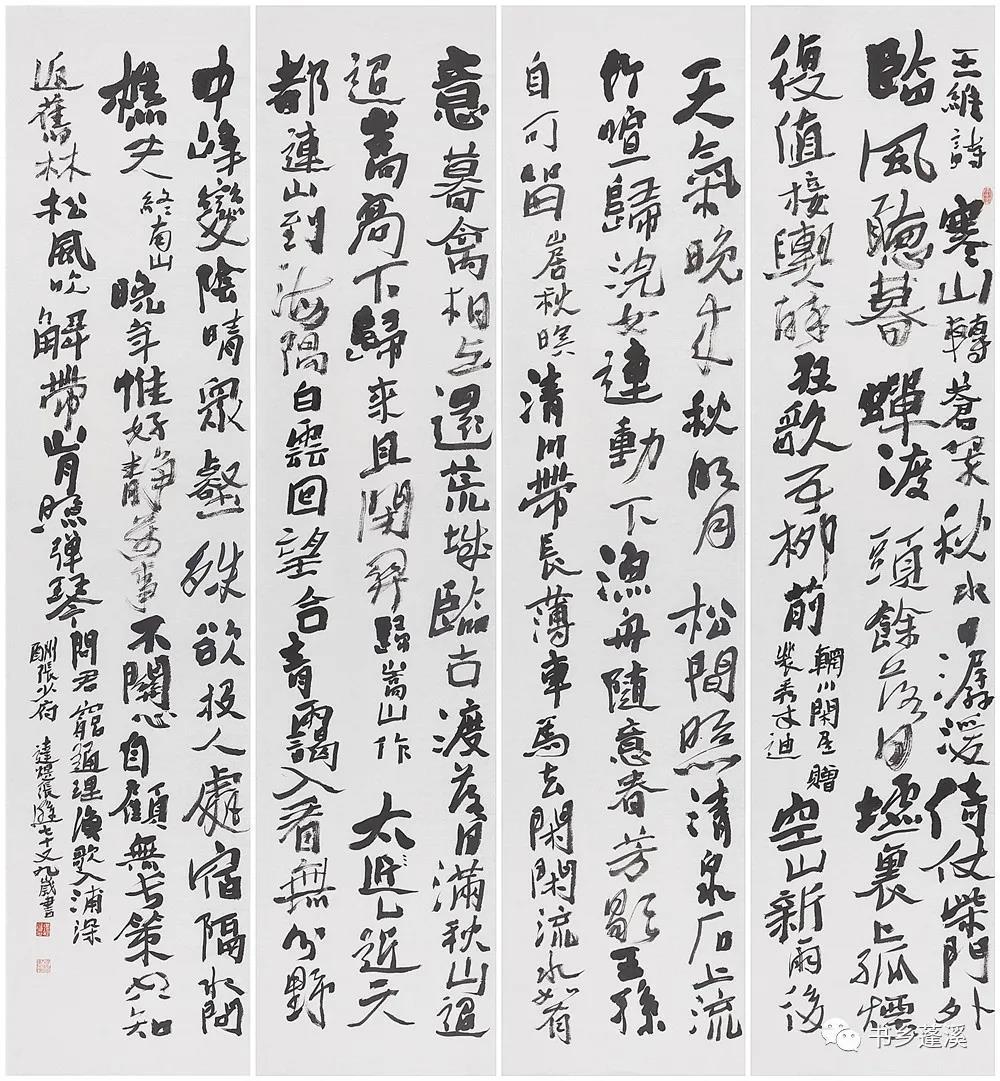 王維詩 寒山轉蒼翠秋水日潺湲倚仗柴門外
臨風聽暮蟬渡頭餘落日墟裏上孤煙
復值接輿醉狂歌五柳前 輞川閑居贈
裴秀才迪 空山新雨後
天氣晚来秋明月松間照清泉石上流
竹喧歸浣女蓮動下漁舟隨意春芳歇王孫
自可留 山居秋暝 清川帶長薄車馬去閑閑流水如有
意暮禽相与還荒城臨古渡落日滿秋山迢
迢嵩高下歸來且閉關 歸嵩山作 太乙近天
都連山到海隅白雲回望合青靄入看無分野
中峰變陰晴眾壑殊欲投人處宿隔水問
樵夫 終南山 晚年惟好静萬事不關心自顧無長策空知
返舊林松風吹解帶山月照弹琴 問君窮通理漁歌入浦深
酬張少府 張 七十又九歲書
书乡蓬溪